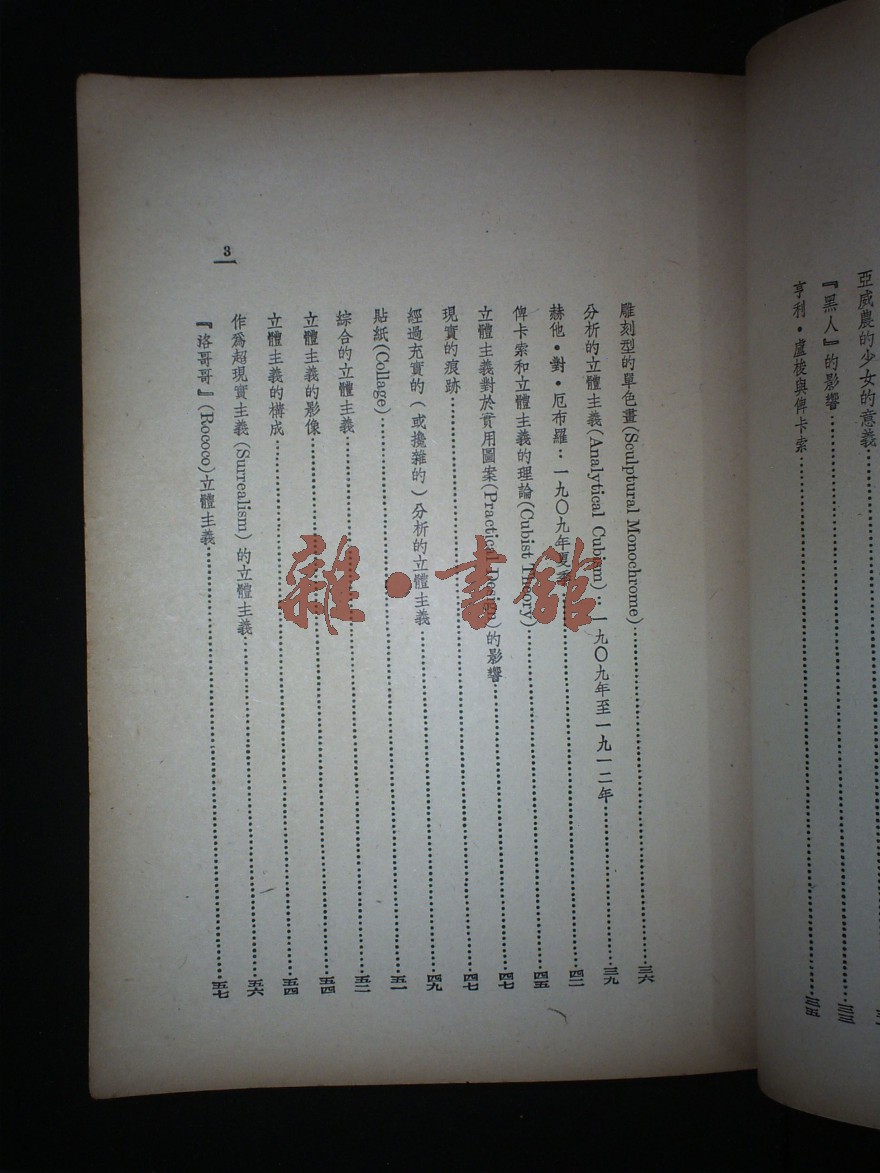 亞威農的少女的意義
『黑人』的影響……三三
亨利・盧梭與俾卡索……三五
雕刻型的單色畫(Sculptural Monochrome)……三六
分析的立體主義(Analytical Cubism)：一九〇九年至一九一二年……三九
赫他・對・厄布羅：一九〇九年夏季……四二
俾卡索和立體主義的理論(Cubist Theory)……四五
立體主義對於實用圖案(Practical Design)的影響……四七
現實的痕跡……四七
經過充實的(或攙雜的)分析的立體主義……四九
貼紙(Collage)……五一
綜合的立體主義……五二
立體主義的影像……五四
立體主義的構成……五四
作爲超現實主義(Surrealism)的立體主義……五六
『洛哥哥』(Rococo)立體主義……五七
3
雜・書館